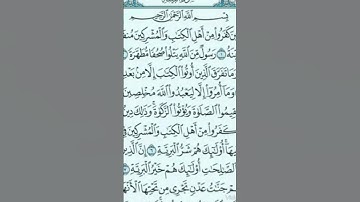 بِسْمِ اللَّهِ الرَّحْمَٰنِ الرَّحِيمِ
كَفَرُوا مِنْ أَهْلِ الْكِتَٰبِ وَالْمُشْرِكِينَ
رَسُولٌ مِّنَ اللَّهِ يَتْلُوا صُحُفًا مُّطَهَّرَةً
وَمَا تَفَرَّقَ الَّذِينَ أُوتُوا الْكِتَٰبَ إِلَّا مِنۢ بَعْدِ
وَمَا أُمِرُوا إِلَّا لِيَعْبُدُوا اللَّهَ مُخْلِصِينَ
الصَّلَوٰةَ وَيُؤْتُوا الزَّكَوٰةَ وَذَٰلِكَ دِينُ
كَفَرُوا مِنْ أَهْلِ الْكِتَٰبِ وَالْمُشْرِكِينَ فِي
أُولَٰئِكَ هُمْ شَرُّ الْبَرِيَّةِ ٦ إِنَّ الَّذِينَ
الصَّٰلِحَٰتِ أُولَٰئِكَ هُمْ خَيْرُ الْبَرِيَّةِ
جَنَّٰتُ عَدْنٍ تَجْرِي مِن تَحْتِهَا